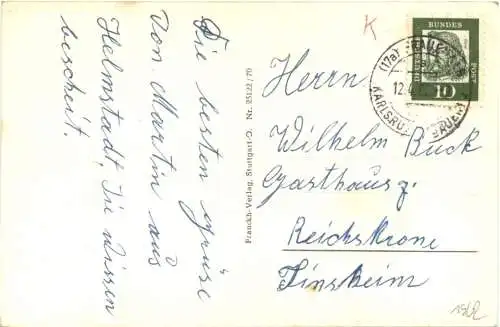 Die besten grüse
von Martin aus
Helmstadt, Sie wissen
bescheit.
Franckh-Verlag, Stuttgart-O. Nr. 25122/70
K
(17a)
KARLSRU
12.4
DEUTSCHE
BUNDES
POST
10
Herrn
Wilhelm Buck
Gasthaus z.
Reichskrone
Sinsheim
1962